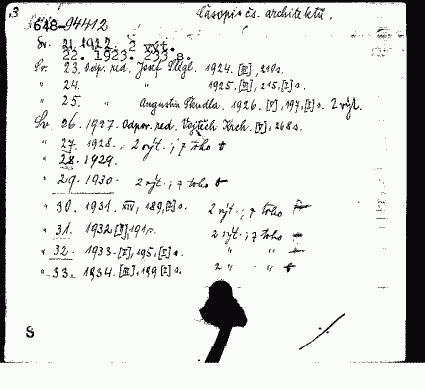 .3 Časopis čs. architektů.
648-94412
Sv. 21.1922. 2 výt.
22. 1923. 233 s.
Sv. 23. odp. red. Josef Štěgl. 1924. [IV], 210 s.
" 24. " 1925. [IV], 215, [I] s.
" 25. " Augustin Skudla. 1926. [V], 197, [I] s. 2 výt.
Sv. 26. 1927. Odpov. red. Vojtěch Krch. [V], 268 s.
" 27. 1928. ; 2 výt. ; z toho
" 28. 1929.
" 29. 1930. 2 výt. ; z toho
" 30. 1931. XIV, 189, [I] s. 2 výt. ; z toho
" 31. 1932. [V] 191 s. 2 výt. ; z toho
" 32. 1933. [V], 195, [I] s. " "
" 33. 1934. [III], 199 [I] s. 2 " "
S